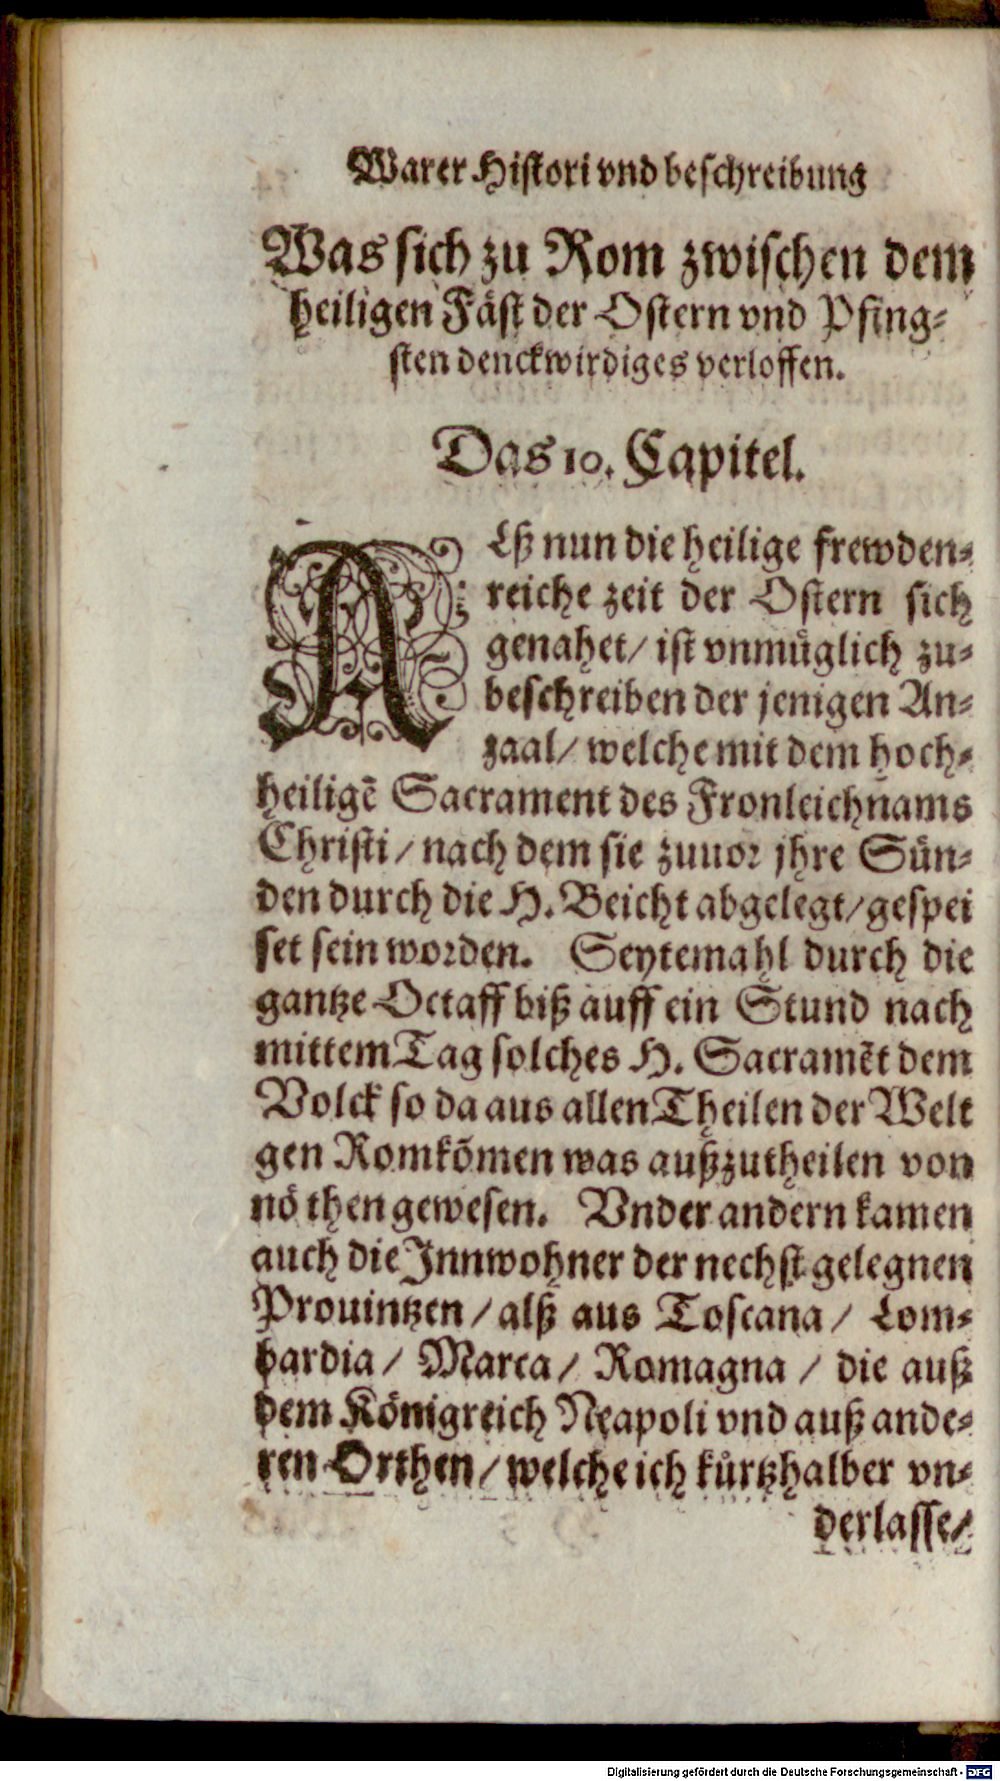 Warer Histori vnd beschreibung
Was sich zu Rom zwischen dem
heiligen Fäst der Ostern vnd Pfing-
sten denckwirdiges verloffen.
Das 10. Capitel.
ALß nun die heilige frewden-
reiche zeit der Ostern sich
genahet/ ist vnmüglich zu-
beschreiben der jenigen An-
zaal/ welche mit dem hoch-
heiligē Sacrament des Fronleichnams
Christi/ nach dem sie zuuor jhre Sün-
den durch die H. Beicht abgelegt/ gespei
set sein worden. Seytemahl durch die
gantze Octaff biß auff ein Stund nach
mittem Tag solches H. Sacramēt dem
Volck so da aus allen Theilen der Welt
gen Rom kōmen was außzutheilen von
nöthen gewesen. Vnder andern kamen
auch die Innwohner der nechst gelegnen
Prouintzen/ alß aus Toscana/ Lom-
bardia/ Marca/ Romagna/ die auß
dem Königreich Neapoli vnd auß ande-
ren Orthen/ welche ich kürtzhalber vn-
derlasse/
Digitalisierung gefördert durch die Deutsche Forschungsgemeinschaft - DFG